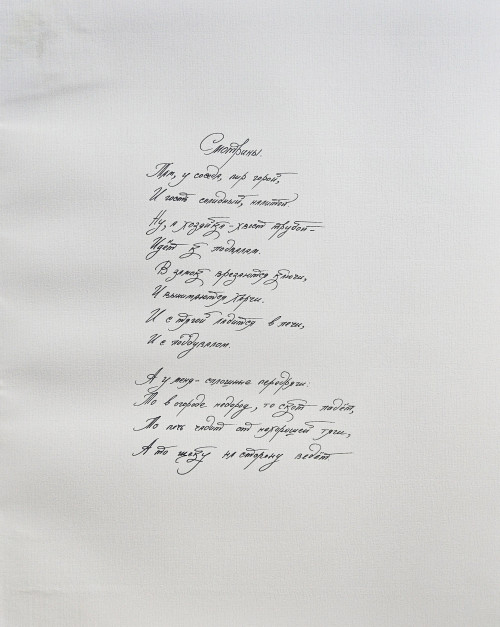 Смотрины.
Там, у соседа, пир горой,
И гость солидный, налитой
Ну, а хозяйка - хвост трубой -
Идёт к подвалам.
В замок врезаются ключи,
И вынимаются харчи.
И с тягой ладится в печи,
И с поддувалом.
А у меня - сплошные передряги:
То в огороде недород, то скот падёт,
То печь чадит от нехорошей тяги,
А то щеку на сторону ведёт